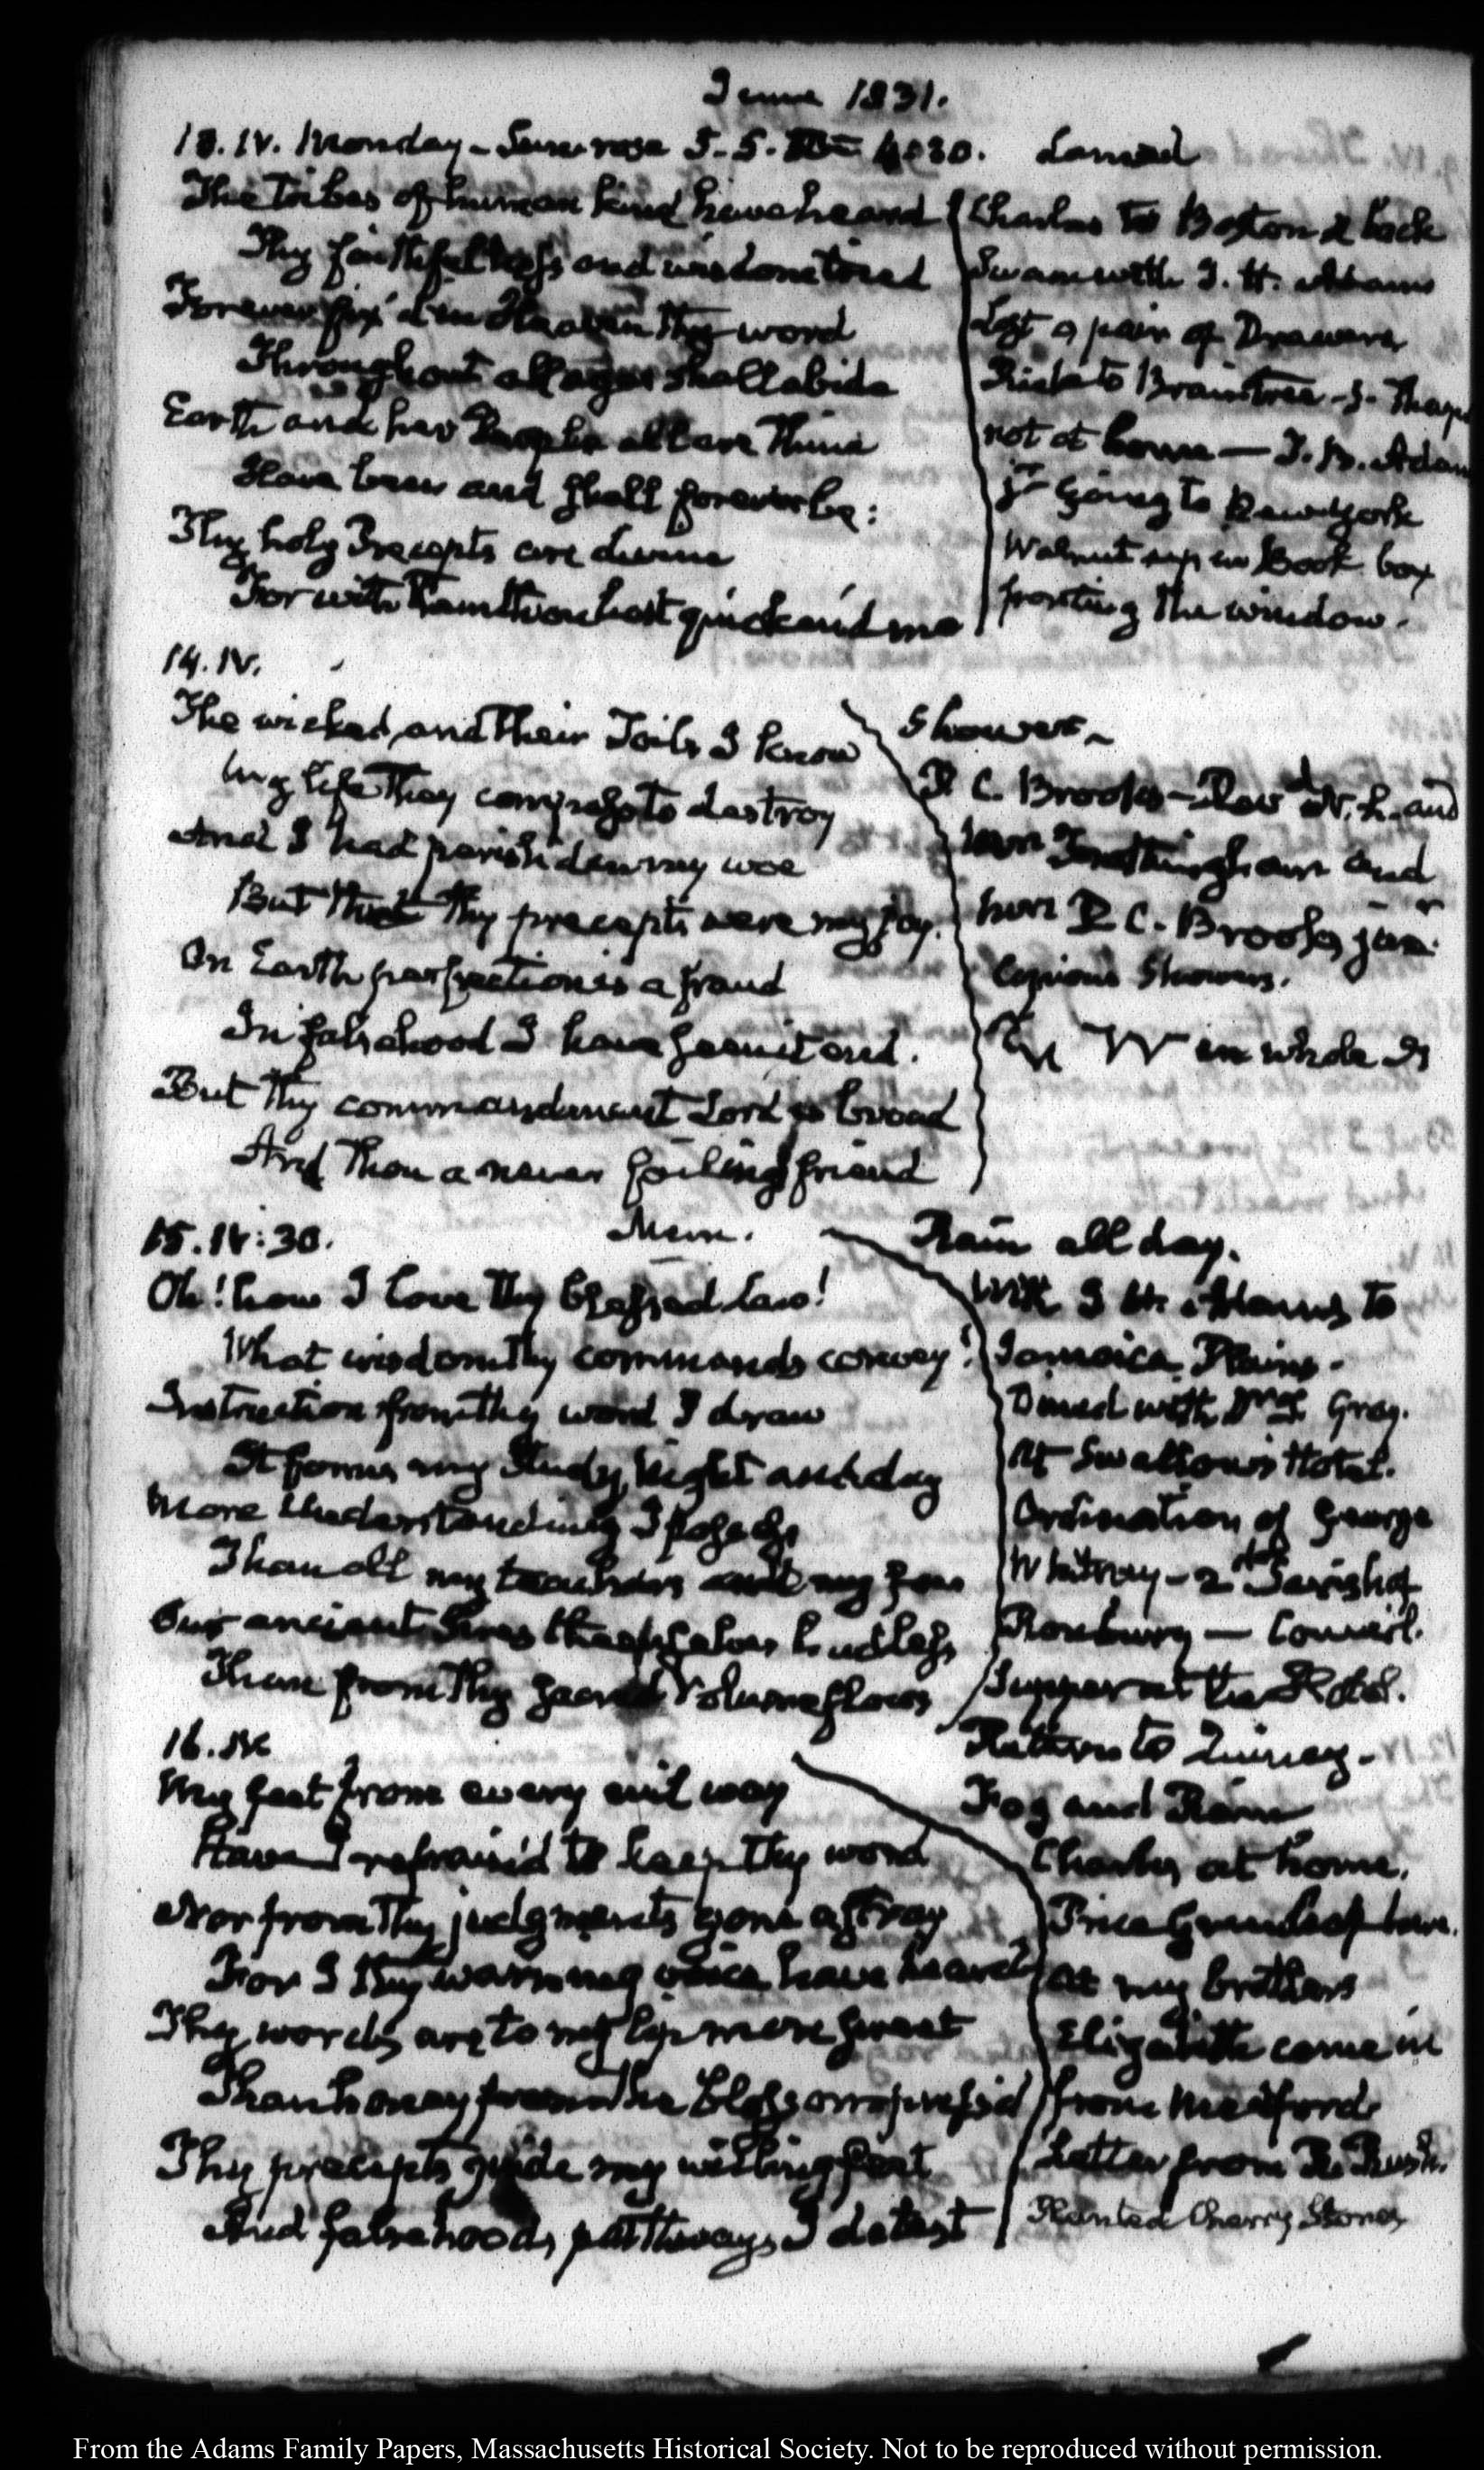 June 1831.
13. IV. Monday - Sun rose 5-5. 4:30. Lamed
The tribes of human kind have heard
Thy faithfulness and wisdom tried
Forever fix'd in Heaven thy word
Throughout all ages shall abide
Earth and her People all are Thine
Have been and shall forever be:
Thy holy Precepts are divine
For with them thou hast quicken'd me
Charles to Boston & back
Swam with I. H. Adams
Lost a pair of Drawers
Ride to Braintree - S. Thayer
not at home — T. B. Adams
jr going to New York
Walnut up in Book box
fronting the window.
14. IV.
The wicked and their Toils I know
My life they compass to destroy
And I had perish'd in my woe
But that thy precepts were my joy.
On Earth perfection is a fraud
In falsehood I have seen it end.
But thy commandment Lord is broad
And Thou a never failing friend
Shower
P. C. Brooks - Revd. N. L. and
Mrs Frothingham and
Mrs P. C. Brooks junr.
Copious Showers.
in whole
15. IV:30. Mem.
Oh! how I love thy blessed law!
What wisdom thy commands convey!
Instruction from thy word I draw
It forms my study, Night and day
More Understanding I possess
Than all my teachers and my foes
Our ancient Sires themselves less
Than from thy sacred Volume flows
Rain all day.
With I H. Adams to
Jamaica Plains.
Dined with Mr Gray.
At Swallow's Hotel.
Ordination of George
Whitney - 2d Parish of
Roxbury — Council.
Supper at the Hotel.
Return to Quincy -
16. IV
My feet from every evil way
Have I refrain'd to keep thy word
Nor from Thy judgments gone astray
For I thy warning voice have heard
Thy words are to my lips more sweet
Than honey from the blossom press'd
Thy precepts guide my willing feet
And falsehoods pathways I detest
Fog and Rain
Charles at home.
Price Greenleaf here.
At my brothers
Elizabeth came in
from Medford
Letter from R. Rush.
Planted Cherry Stones
From the Adams Family Papers, Massachusetts Historical Society. Not to be reproduced without permission.